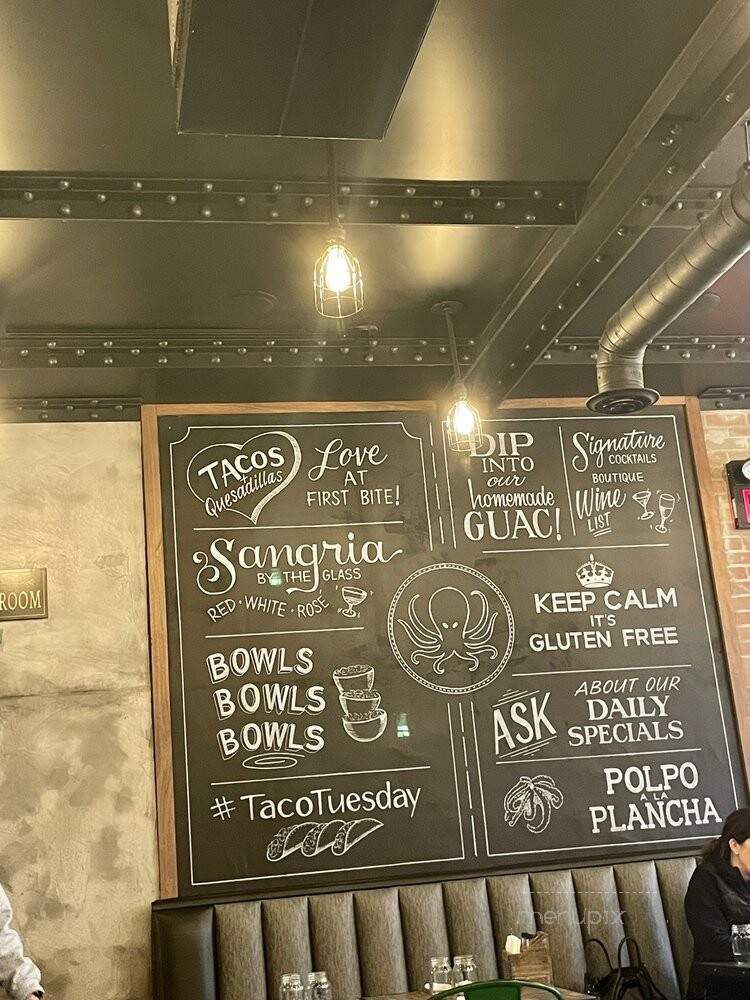 TACOS
Quesadillas
Love
AT
FIRST BITE!
DIP
INTO
our
homemade
GUAC!
Signature
COCKTAILS
BOUTIQUE
Wine
LIST
Sangria
BY THE GLASS
RED · WHITE · ROSÉ
KEEP CALM
IT'S
GLUTEN FREE
BOWLS
BOWLS
BOWLS
ASK
ABOUT OUR
DAILY
SPECIALS
#TacoTuesday
POLPO
A LA
PLANCHA
ROOM
menupix